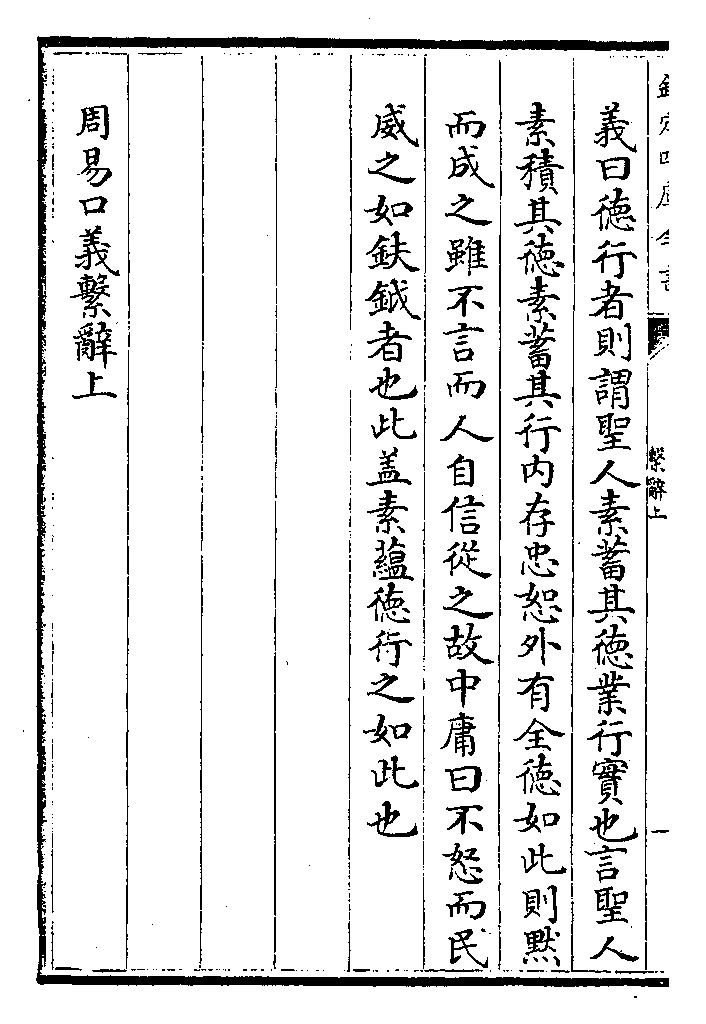 欽定四庫全書
繫辭上
義曰徳行者則謂聖人素蓄其徳業行實也言聖人
素積其徳素蓄其行内存忠恕外有全徳如此則黙
而成之雖不言而人自信從之故中庸曰不怒而民
威之如鈇鉞者也此盖素蘊徳行之如此也
周易口義繫辭上